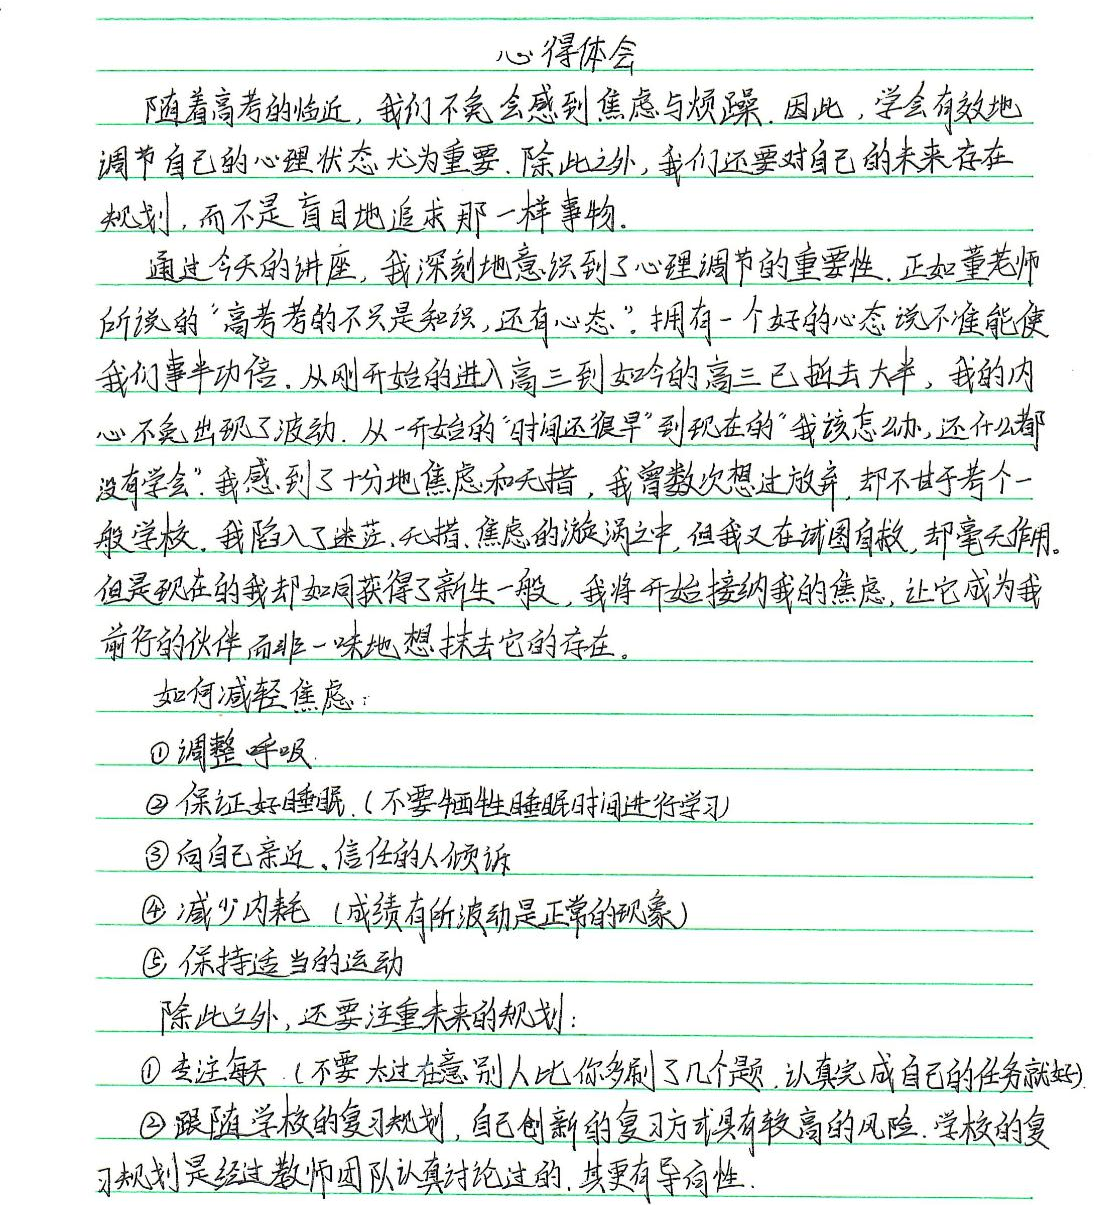 心得体会
随着高考的临近，我们不免会感到焦虑与烦躁.因此，学会有效地
调节自己的心理状态尤为重要.除此之外,我们还要对自己的未来存在
规划，而不是盲目地追求那一样事物.
通过今天的讲座，我深刻地意识到了心理调节的重要性.正如董老师
所说的“高考考的不只是知识,还有心态”.拥有一个好的心态说不准能使
我们事半功倍.从刚开始的进入高三到如今的高三已逝去大半，我的内
心不免出现了波动.从一开始的“时间还很早”到现在的“我该怎么办,还什么都
没有学会”.我感到了十分地焦虑和无措，我曾数次想过放弃,却不甘于考个一
般学校.我陷入了迷茫、无措、焦虑的漩涡之中,但我又在试图自救,却毫无作用。
但是现在的我却如同获得了新生一般，我将开始接纳我的焦虑,让它成为我
前行的伙伴而非一味地想抹去它的存在。
如何减轻焦虑：
①调整呼吸.
②保证好睡眠.(不要牺牲睡眠时间进行学习)
③向自己亲近、信任的人倾诉
④减少内耗 (成绩有所波动是正常的现象)
⑤保持适当的运动
除此之外，还要注重未来的规划：
①专注每天.(不要太过在意别人比你多刷了几个题.认真完成自己的任务就好).
②跟随学校的复习规划，自己创新的复习方式具有较高的风险.学校的复
习规划是经过教师团队认真讨论过的.其更有导向性.